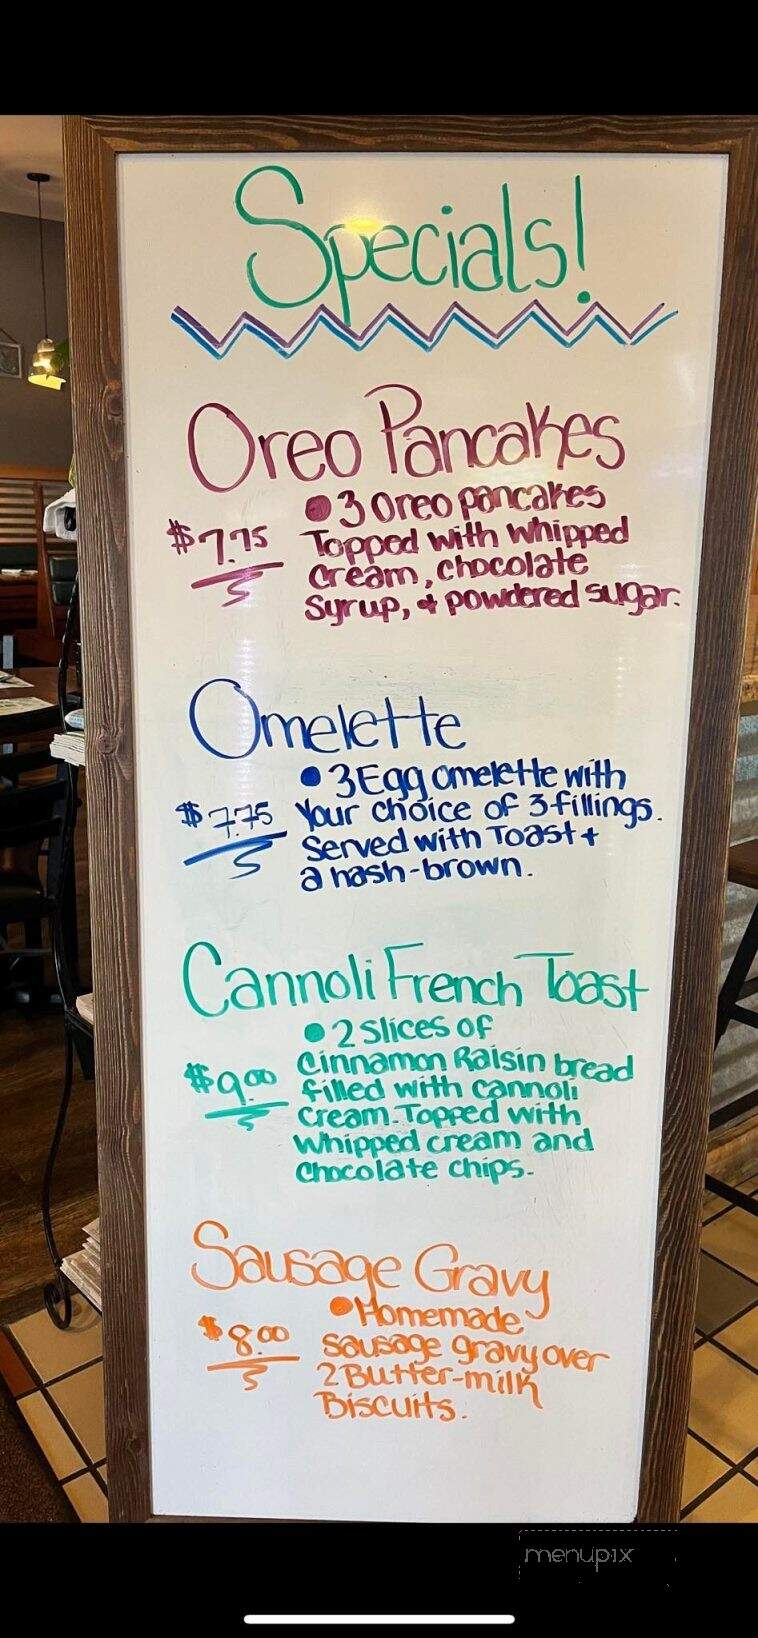 Specials!
Oreo Pancakes
• 3 Oreo pancakes
$7.75 Topped with whipped
cream, chocolate
syrup, & powdered sugar.
Omelette
• 3 Egg omelette with
$7.75 Your choice of 3 fillings.
Served with Toast +
a hash-brown.
Cannoli French Toast
• 2 slices of
$9.00 Cinnamon Raisin bread
filled with cannoli
cream. Topped with
whipped cream and
chocolate chips.
Sausage Gravy
• Homemade
$8.00 sausage gravy over
2 Butter-milk
Biscuits.
menupix